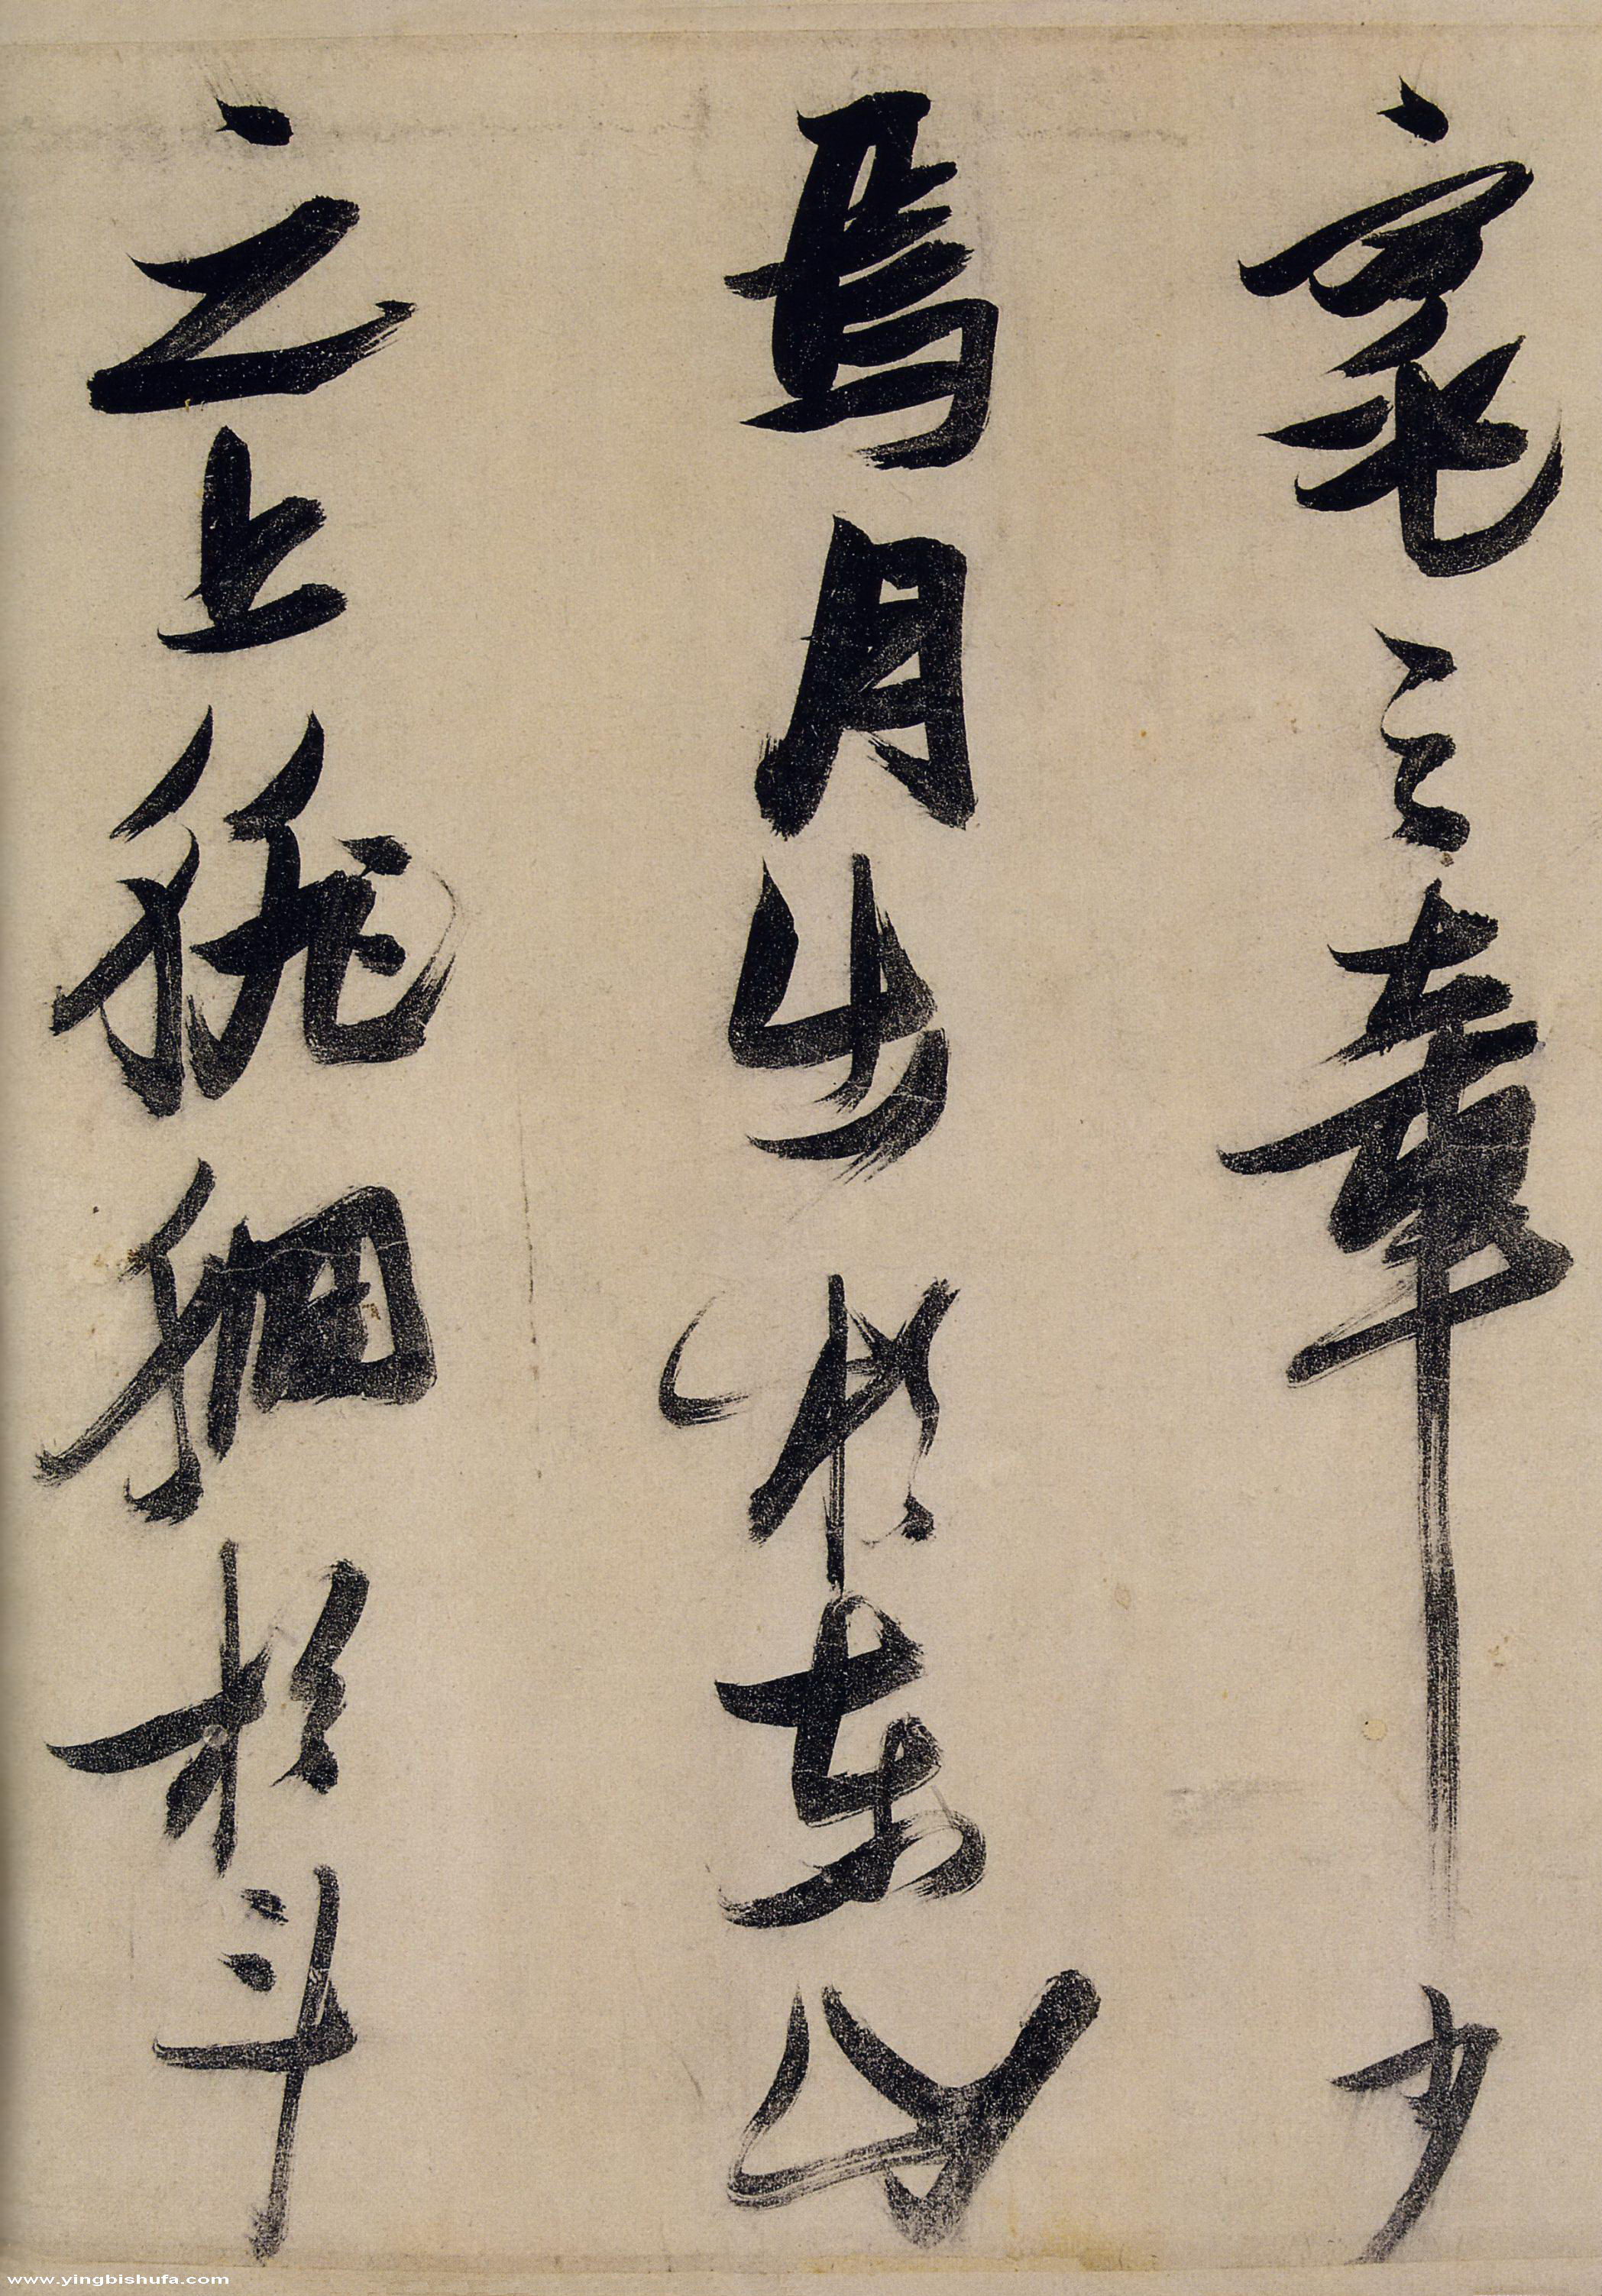 窕之章少
焉月出於東山
之上徘徊於斗
www.yingbishufa.com